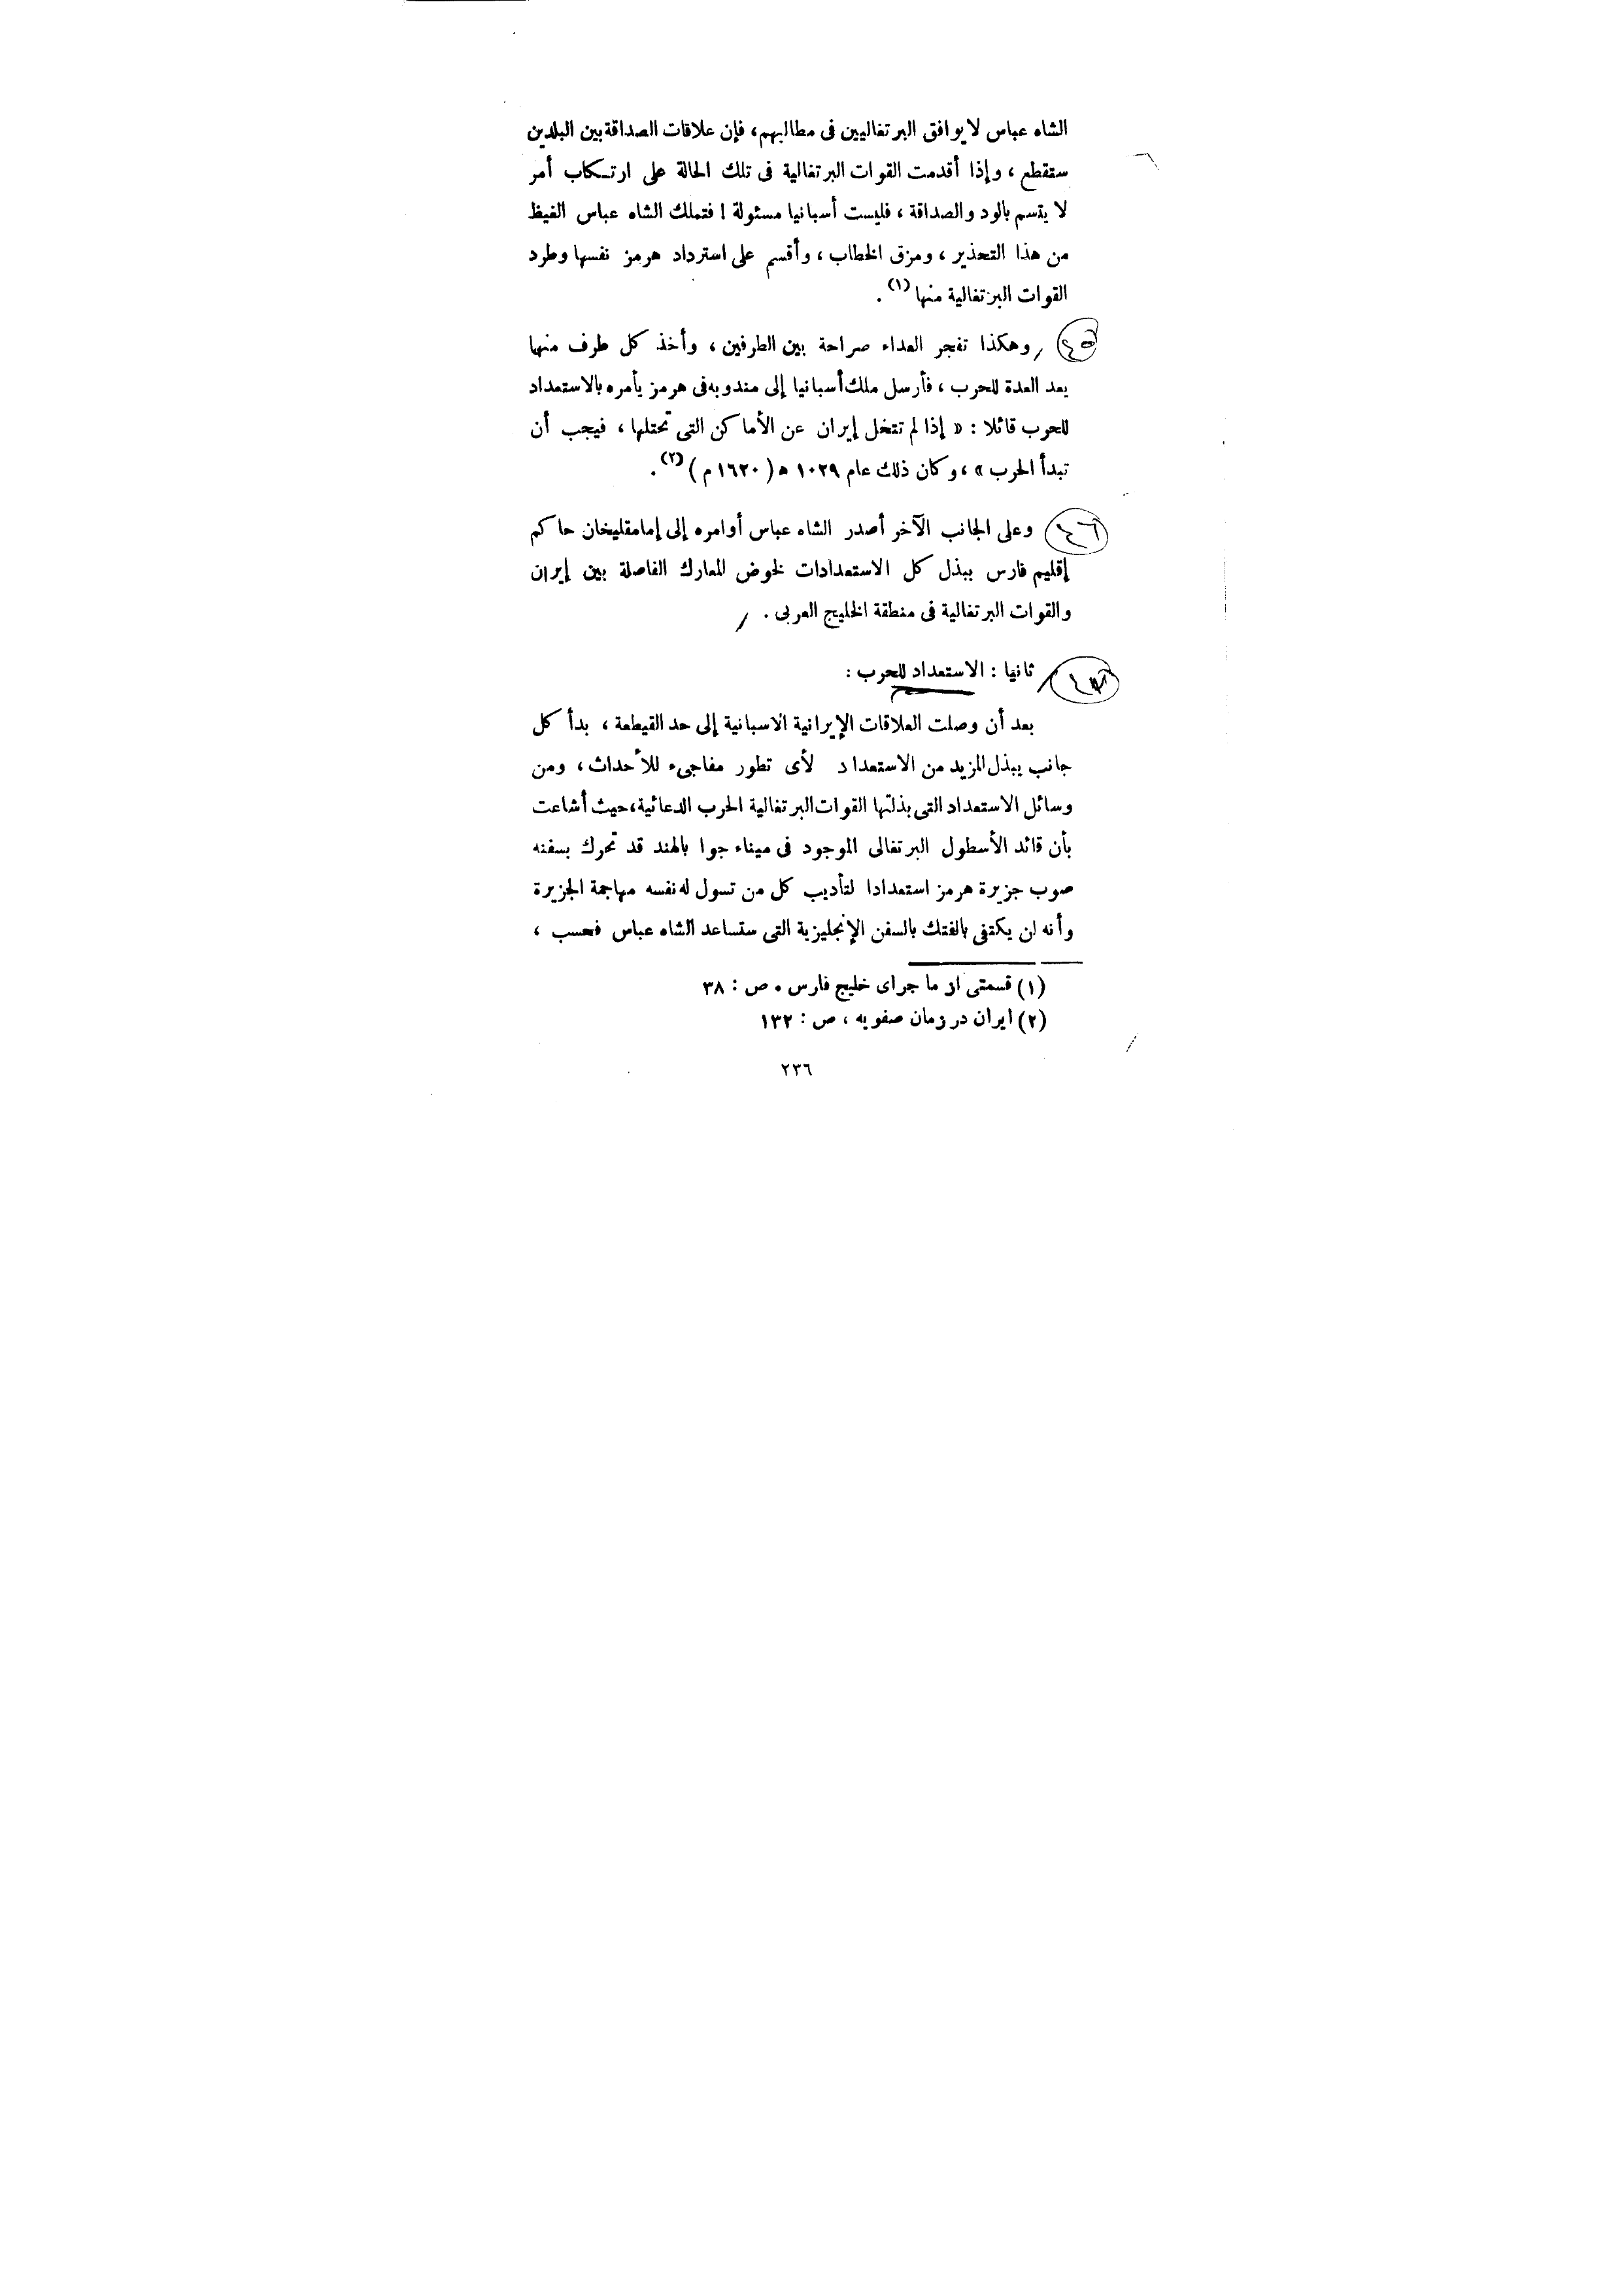 الشاه عباس لا يوافق البرتغاليين فى مطالبهم، فإن علاقات الصداقة بين البلدين
ستقطع ، وإذا أقدمت القوات البرتغالية فى تلك الحالة على ارتكاب أمر
لا يتسم بالود والصداقة ، فليست أسبانيا مسئولة ! فتملك الشاه عباس الغيظ
من هذا التحذير ، ومزق الخطاب ، وأقسم على استرداد هرمز نفسها وطرد
القوات البرتغالية منها (١) .
٤٥ وهكذا تفجر العداء صراحة بين الطرفين ، وأخذ كل طرف منها
يعد العدة للحرب ، فأرسل ملك أسبانيا إلى مندوبه فى هرمز يأمره بالاستعداد
للحرب قائلا : « إذا لم تتخل إيران عن الأماكن التى تحتلها ، فيجب أن
تبدأ الحرب » ، وكان ذلك عام ١٠٢٩ ه ( ١٦٢٠ م ) (٢) .
٤٦ وعلى الجانب الآخر أصدر الشاه عباس أوامره إلى إمامقليخان حاكم
إقليم فارس ببذل كل الاستعدادات لخوض المعارك الفاصلة بين إيران
والقوات البرتغالية فى منطقة الخليج العربى .
ثانيا : الاستعداد للحرب :
بعد أن وصلت العلاقات الإيرانية الاسبانية إلى حد القيطعة ، بدأ كل
جانب ببذل المزيد من الاستعداد لأى تطور مفاجىء للأحداث ، ومن
وسائل الاستعداد التى بذلتها القوات البرتغالية الحرب الدعائية، حيث أشاعت
بأن قائد الأسطول البرتغالى الموجود فى ميناء جوا بالهند قد تحرك بسفنه
صوب جزيرة هرمز استعدادا لتأديب كل من تسول له نفسه مهاجمة الجزيرة
وأنه لن يكتفى بالفتك بالسفن الإنجليزية التى ستساعد الشاه عباس فحسب ،
(١) قسمتى از ما جراى خليج فارس . ص : ٣٨
(٢) ايران در زمان صفويه ، ص : ١٣٢
٢٣٦